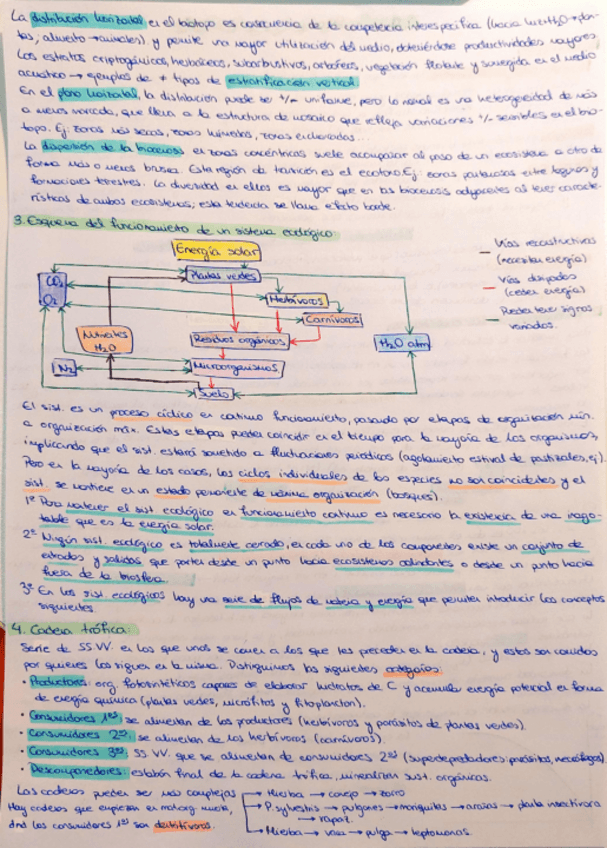 La distribución horizontal en el biotopo es consecuencia de la competencia interespecífica (hacia luz+H2O→plan-
tas, alimento→animales) y permite una mayor utilización del medio, obteniéndose productividades mayores.
Los estratos criptogámicos, herbáceos, subarbustivos, arbóreos, vegetación flotante y sumergida en el medio
acuático → ejemplos de ≠ tipos de estratificación vertical.
En el plano horizontal, la distribución puede ser +/- uniforme, pero lo normal es una heterogeneidad de más
o menos marcada, que lleva a la estructura de mosaico que refleja variaciones +/- sensibles en el bio-
topo. Ej. zonas más secas, zonas húmedas, zonas encharcadas...
La dispersión de la biocenosis en zonas concéntricas suele acompañar al paso de un ecosistema a otro de
forma más o menos brusca. Esta región de transición es el ecotono. Ej: zonas pantanosas entre lagunas y
formaciones terrestres. La diversidad en ellos es mayor que en las biocenosis adyacentes al tener caracte-
rísticas de ambos ecosistemas; esta tendencia se llama efecto borde.
3. Esquema del funcionamiento de un sistema ecológico
Energía solar
CO2
O2
Plantas verdes
Herbívoros
Carnívoros
Nutrientes
H2O
Residuos orgánicos
H2O atm
N2
Microorganismos
Suelo
— Vías reconstructivas
(necesitan energía)
— Vías disipadas
(ceden energía)
— Pueden tener signos
variados.
El sist. es un proceso cíclico en continuo funcionamiento, pasando por etapas de organización mín.
a organización máx. Estas etapas pueden coincidir en el tiempo para la mayoría de los organismos,
implicando que el sist. estará sometido a fluctuaciones periódicas (agotamiento estival de pastizales, ej).
Pero en la mayoría de los casos, los ciclos individuales de las especies no son coincidentes y el
sist. se mantiene en un estado permanente de máxima organización (bosques).
1º Para mantener el sist ecológico en funcionamiento continuo es necesario la existencia de una inago-
table que es la energía solar.
2º Ningún sist. ecológico es totalmente cerrado, en cada uno de los componentes existe un conjunto de
entradas y salidas que parten desde un punto hacia ecosistemas colindantes o desde un punto hacia
fuera de la biosfera.
3º En los sist ecológicos hay una serie de flujos de materia y energía que permiten introducir los conceptos
siguientes
4. Cadena trófica:
Serie de SS.VV. en los que unos se comen a los que les preceden en la cadena, y estos son comidos
por quienes los siguen en la misma. Distinguimos las siguientes categorías:
· Productores: org fotosintéticos capaces de elaborar hidratos de C y acumular energía potencial en forma
de energía química (plantas verdes, micrófitos y fitoplancton).
· Consumidores 1os: se alimentan de los productores (herbívoros y parásitos de plantas verdes).
· Consumidores 2os: se alimentan de los herbívoros (carnívoros).
· Consumidores 3os: SS VV. que se alimentan de consumidores 2os (superdepredadores: parásitos, necrófagos)
· Descomponedores: eslabón final de la cadena trófica, mineralizan sust. orgánicas.
Las cadenas pueden ser más complejas → Hierba → conejo → zorro
Hay cadenas que empiezan en mat.org muerta, → P. sylvestris → pulgones → mariquitas → arañas → planta insectívora
→ rapaz.
dnd los consumidores 1os son detritívoros. → Hierba → vaca → pulga → leptomonas.